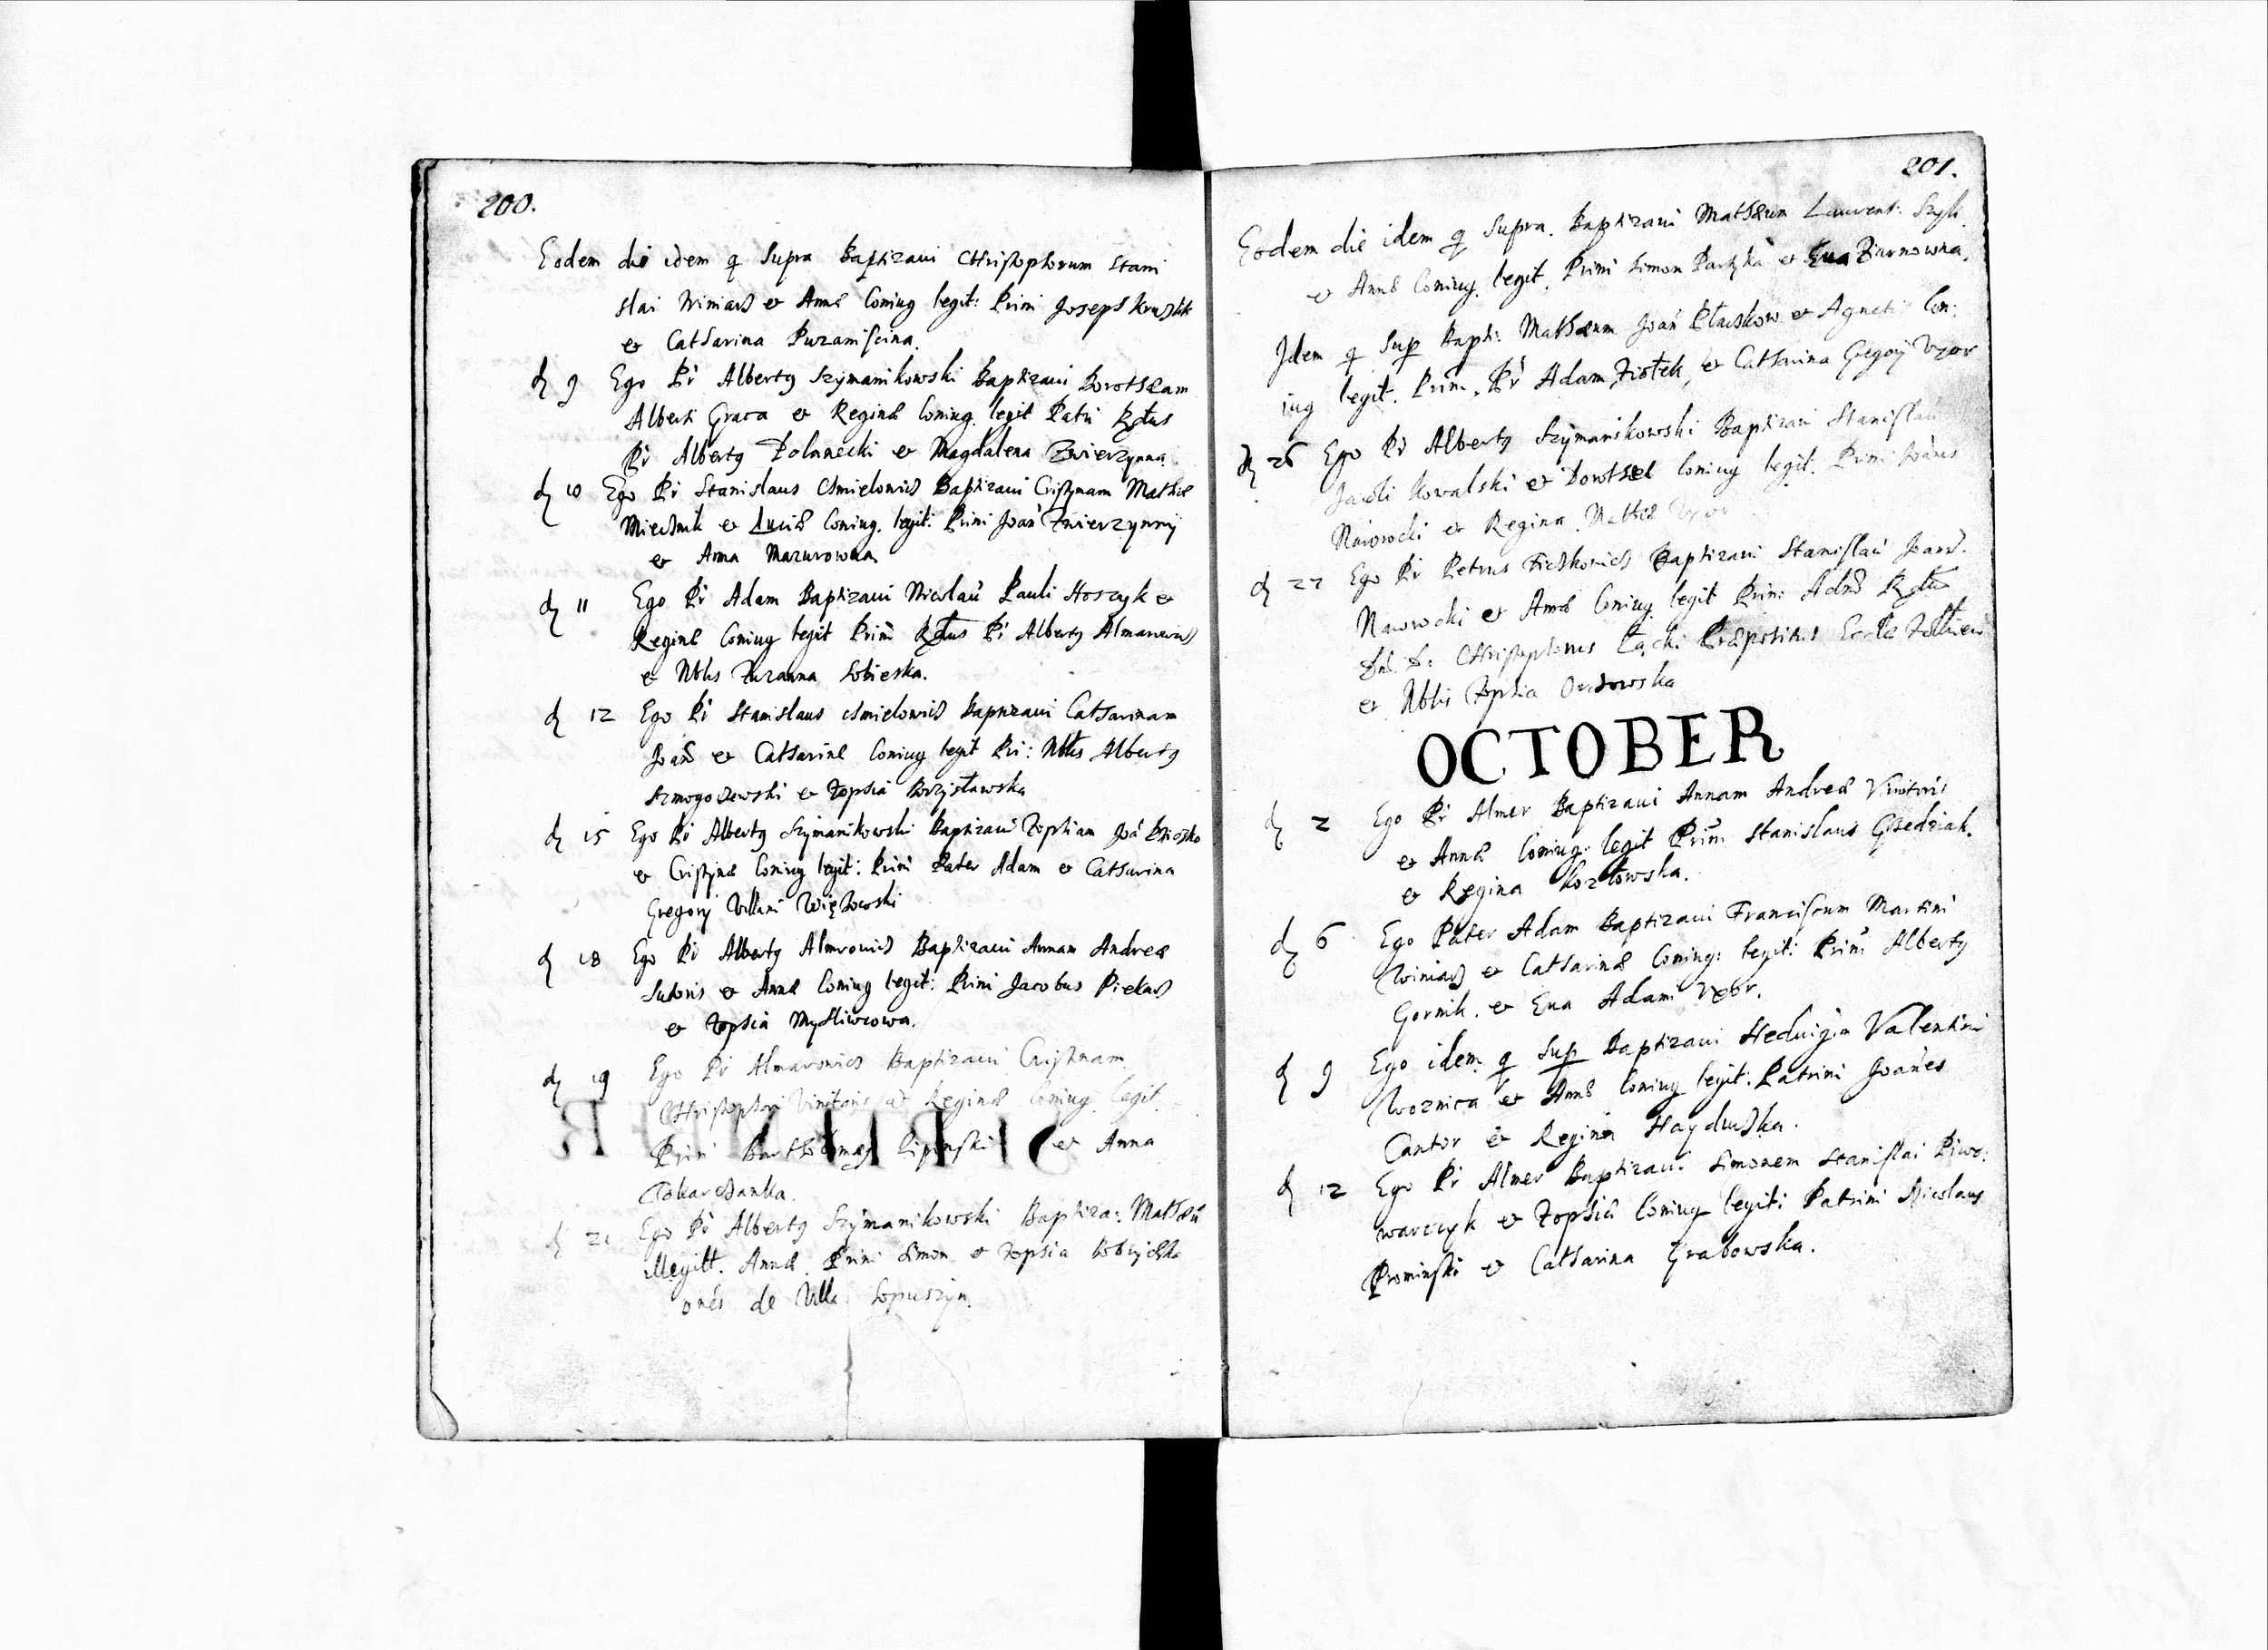 200.
Eodem die idem q Supra Baptizaui Christophorum Stani
slai Winiarz et Annæ Coniug legit: Prini Joseph
et Catharina
d 9 Ego Pr Albertg Szymanikowski Baptizaui Dorothæam
Alberti Graca et Reginæ Coniug legit Patri Rdus
Pr Albertg Polanecki et Magdalena Zwierzynna
d 10 Ego Pr Stanislaus Chmielowicz Baptizaui Cristynam Mathiæ
Miechnik et Luciæ Coniug. legit: Prini Joan Zwierzynny
et Anna Mazurowna
d 11 Ego Pr Adam Baptizaui Nicolau Pauli Hoszyk et
Reginæ Coniug legit Prini Rdus Pr Albertg
et Nblis Zuzanna Sobieska.
d 12 Ego Pr Stanislaus Chmielowicz Baptizaui Catharinam
Joan et Catharinæ Coniug legit Pri: Nblis Albertg
et Zophia
d 15 Ego Pr Albertg Szymanikowski Baptizaui Zophiam Joa
et Cristynæ Coniug legit: Prini Pater Adam et Catharina
Gregorij
d 18 Ego Pr Albertg Baptizaui Annam Andreæ
Sutoris et Annæ Coniug legit: Prini Jacobus Piekarz
et Zophia Mysliwcowa.
d 19 Ego Pr Almarowicz Baptizaui Cristynam
Christophori Vinitoris et Reginæ Coniug legit
Prini Bartholomæg Lipinski et Anna
Tokarchanka.
d 21 Ego Pr Albertg Szymanikowski Baptiza: Mathæu
illegitt. Annæ. Prini Simon et Zophia
de Villa Lopuszyn.
201.
Eodem die idem q Supra. Baptizaui Mathæum Laurent:
et Annæ Coniug. legit. Prini Simon Partyka et Eua Ziarnowna,
Idem q Sup Bapti: Mathæum Joan et Agneti Con:
iug legit. Prini. Pr Adam Ziołek, et Catharina Gregorij Vxor
d 26 Ego Pr Albertg Szymanikowski Baptizaui Stanislau
Jacobi Kowalski et Dorothæ Coniug legit. Prini
Nawrocki et Regina Mathiæ Vxor
d 27 Ego Pr Petrus Baptizaui Stanislau
Nawrocki et Annæ Coniug legit Prini Rdus
Christophorus Łącki Præpositus
et Nblis Zophia
OCTOBER
d 2 Ego Pr Almer Baptizaui Annam Andreæ Vinitoris
et Annæ Coniug: legit Prini Stanislaus
et Regina Kozłowska.
d 6 Ego Pater Adam Baptizaui Franciscum Martini
Winiarz et Catharinæ Coniug: legit: Prini Albertg
Gornik. et Eua Adami Vxor.
d 9 Ego idem q Sup Baptizaui Heduigim Valentini
Woznica et Annæ Coniug legit: Patrini Joanes
Cantor et Regina Hayduczka.
d 12 Ego Pr Almer Baptizaui Simonem Stanislai Piwo:
warczyk et Zophiæ Coniug legit: Patrini Nicolaus
Prominski et Catharina Grabowska.